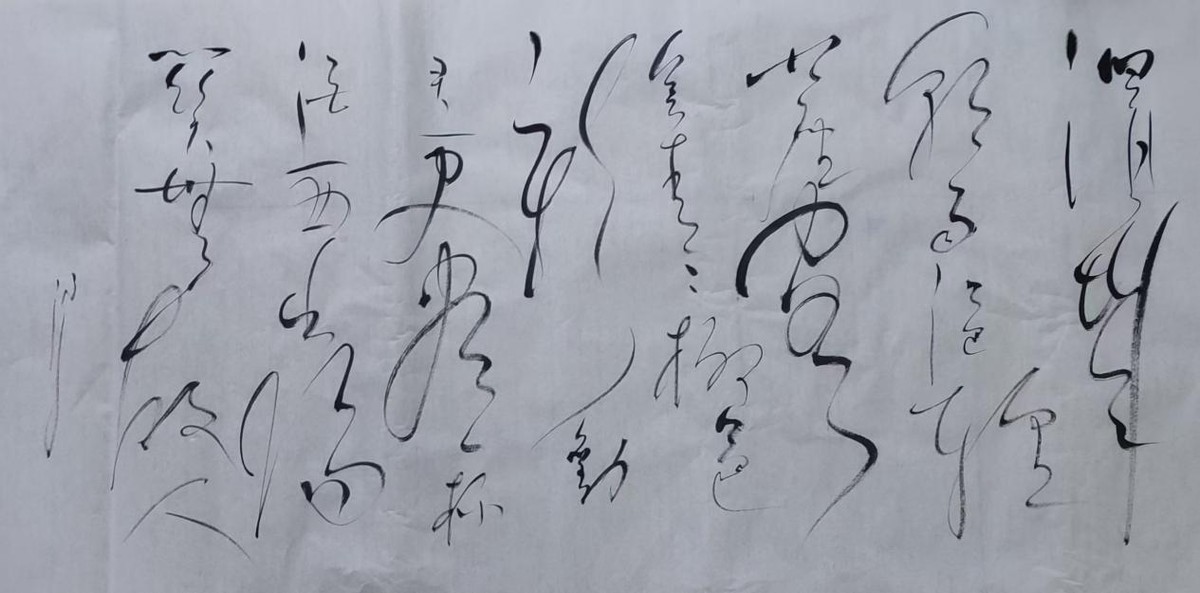 渭城
朝雨浥輕
塵客
舍青青柳色
新勸
君更盡一杯
酒西出陽
關無故人